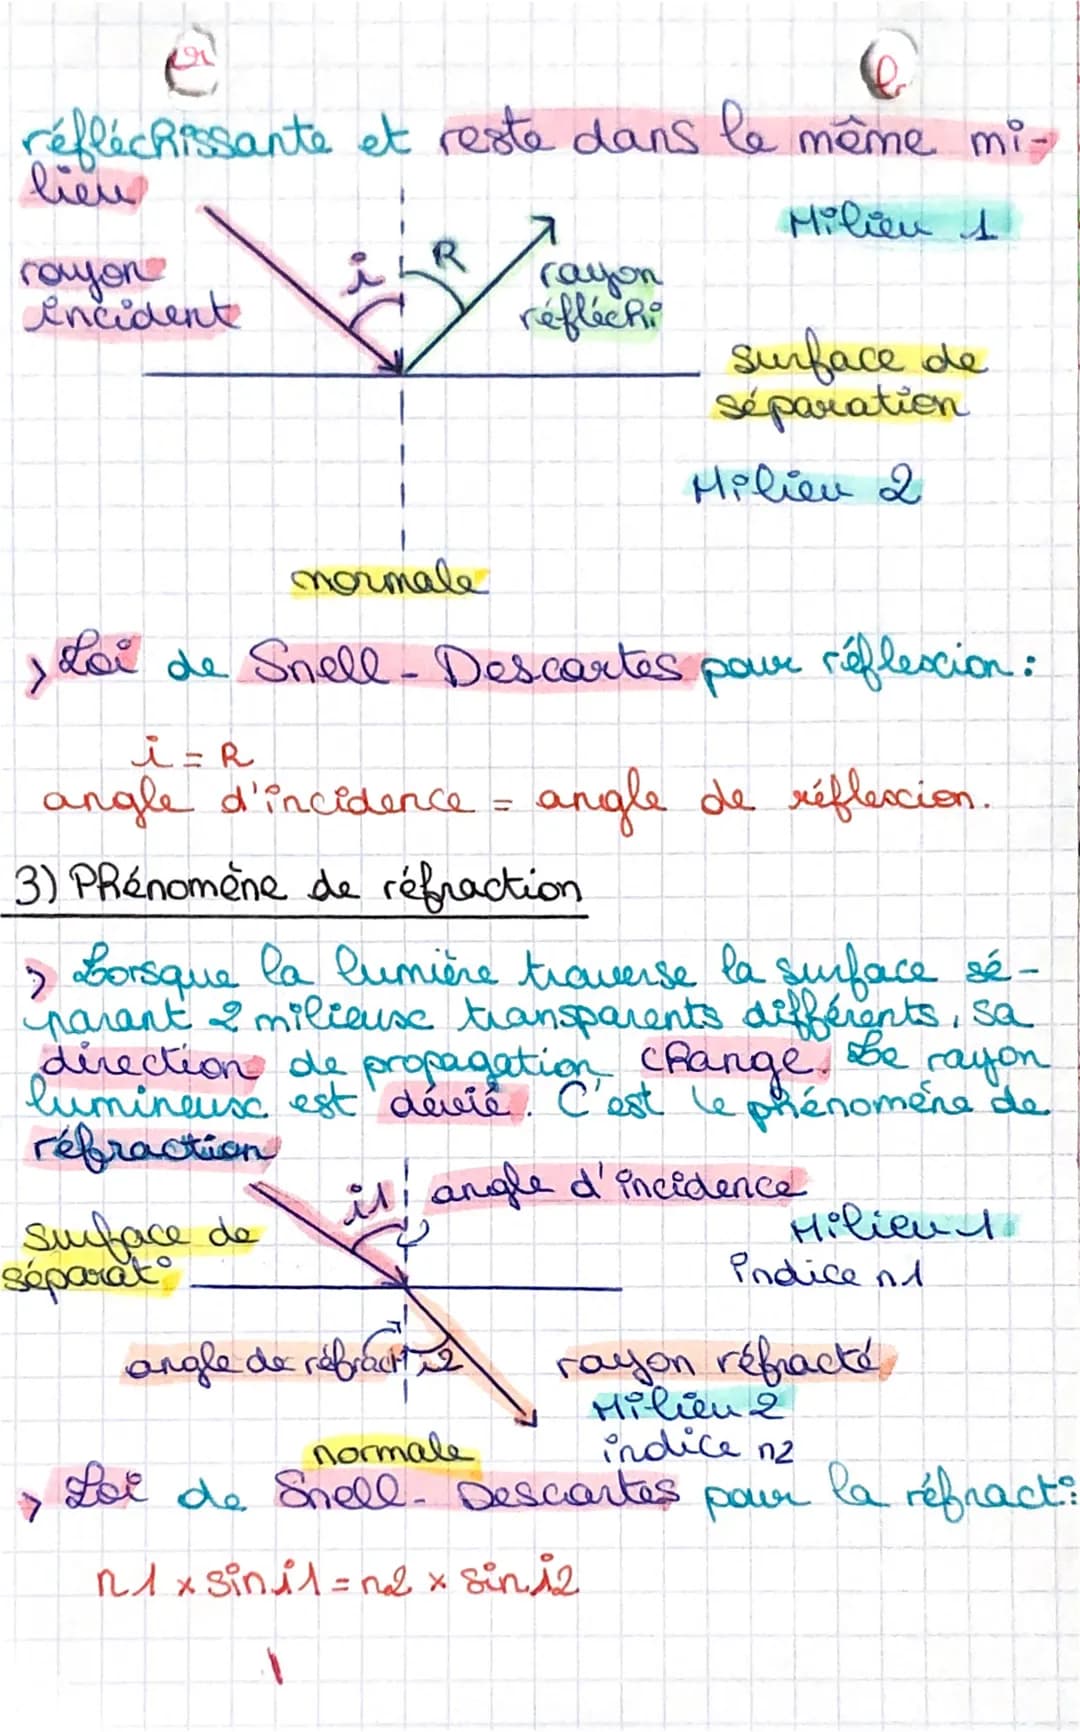 réfléchissante et reste dans le même mi-
lieu
Milieu 1
i
R
rayon
incident
rayon
réfléchi
surface de
séparation
Milieu 2
normale
Loi de Snell-Descartes pour réflexion :
i = R
angle d'incidence = angle de réflexion.
3) Phénomène de réfraction
Lorsque la lumière traverse la surface sé-
parant 2 milieux transparents différents, sa
direction de propagation change. Le rayon
lumineux est dévié. C'est le phénomène de
réfraction
i1
angle d'incidence
surface de
séparat°
Milieu 1
indice n1
angle de réfract°
i2
rayon réfracté
Milieu 2
indice n2
normale
Loi de Snell-Descartes pour la réfract° :
n1 x sin i1 = n2 x sin i2